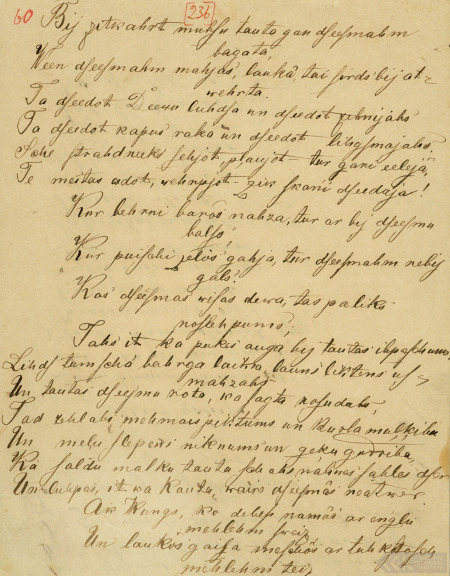 60 236
Bij zitkahrt muhsu tauta gan dseesmahm
bagata
Ween dseesmahm mahjâs, laukâ, tai sirds bij at-
wehrta.
Ta dseedot Deewu luhdsa un dseedot
Ta dseedot kapus raka un dseedot lihgsmajahs.
Sche strahdneeki sehjot, plaujot tur gani eelejâ,
Te meitas adot, wehrpjot skani dseedaja!
Kur behrni barôs nahza, tur ar bij dseesmu
balss
Kur puischi jelôs gahja, tur dseesmahm nebij
gals.
Kas dseesmas wisas dewa, tas paliks
noslehpums,
Tahs it ka pukes auga bij tautas ihpaschums.
Lihds tumscha behrga laiwa, launs us-
mahzahs
Un tautas dseesmu rota, ka sagta nosuduse,
Tad zehlahs mehmais un Kurla mulkiba
Un melu slepens niknums un geku gudriba
Ka saldu malku tauta nahwes sahles dser
Un luhpas, it ka Kauta, wairs dseesmâs neatwer
Ak Kungs, ko debess namôs ar engelu
mehlehm
Un laukôs gaisa meschôs ar tuhkstosch
mehlehm teiz